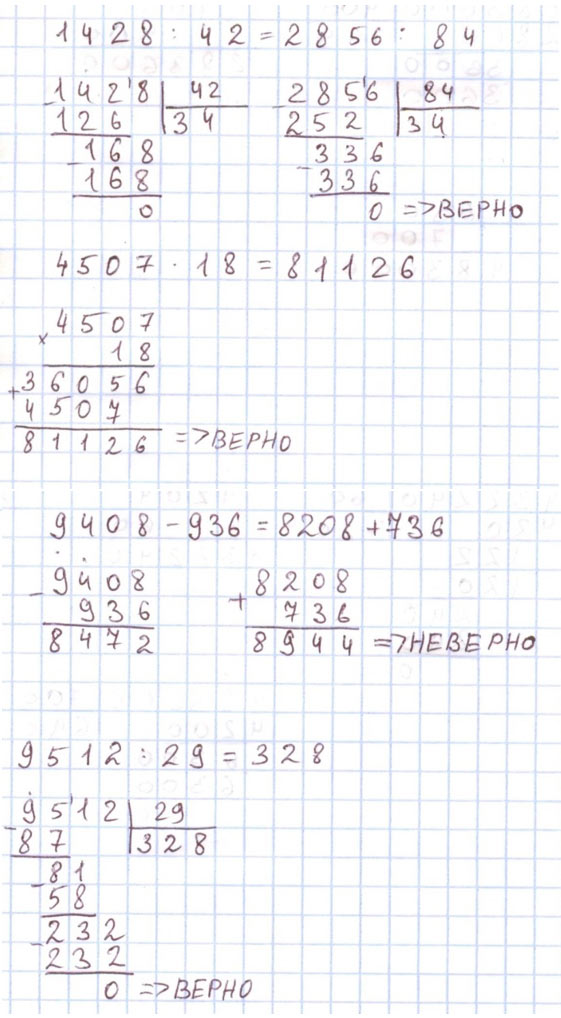 1428 : 42 = 2856 : 84
1428 42 2856 84
126 34 252 34
168 336
168 336
0 0 => ВЕРНО
4507 · 18 = 81126
4507
× 18
+ 36056
4507
81126 => ВЕРНО
9408 - 936 = 8208 + 736
- 9408 + 8208
936 736
8472 8944 => НЕВЕРНО
9512 : 29 = 328
- 9512 29
87 328
- 81
58
- 232
232
0 => ВЕРНО